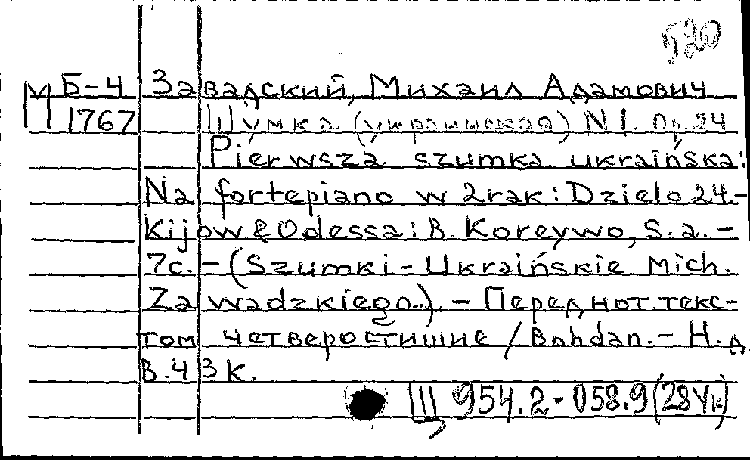 530
Б-4 Завадский, Михаил Адамович
М 1767 Шумка (украинская) N1. Ор. 24
Pierwsza szumka ukraińska:
Na fortepiano w 2 rak: Dzielo 24.-
Kijow & Odessa: B. Koreywo, S.a. -
7с. - (Szumki - Ukraińskie Mich.
Zawadzkiego..). - Перед нот. текс-
том четверостишие / Bohdan. - Н.д.
В.43К.
Щ 954.2-058.9(28Ук)